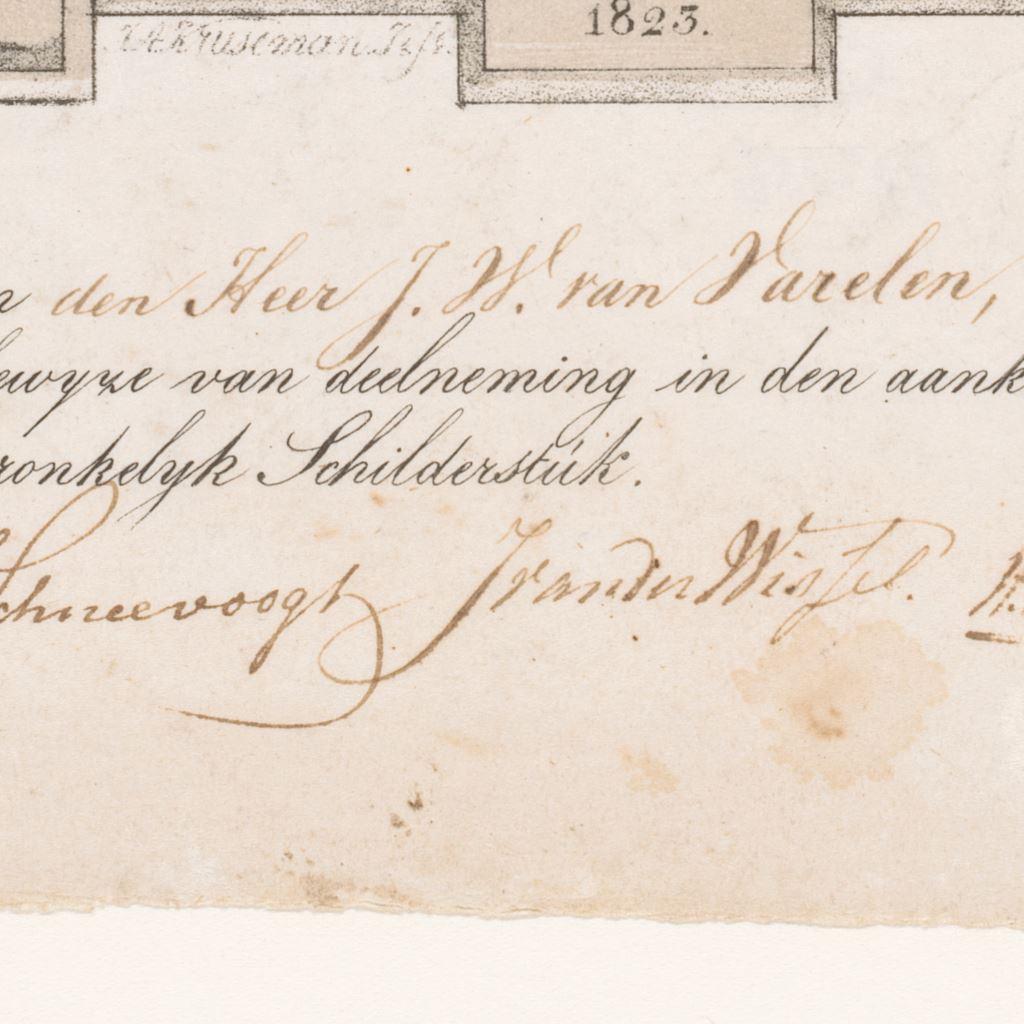 1823.
J.A. Kruseman Jr. ft.
n den Heer J. W. van Varelen,
ewyze van deelneming in den aank
ronkelyk Schilderstúk.
Schneevoogt J van der Wissel.